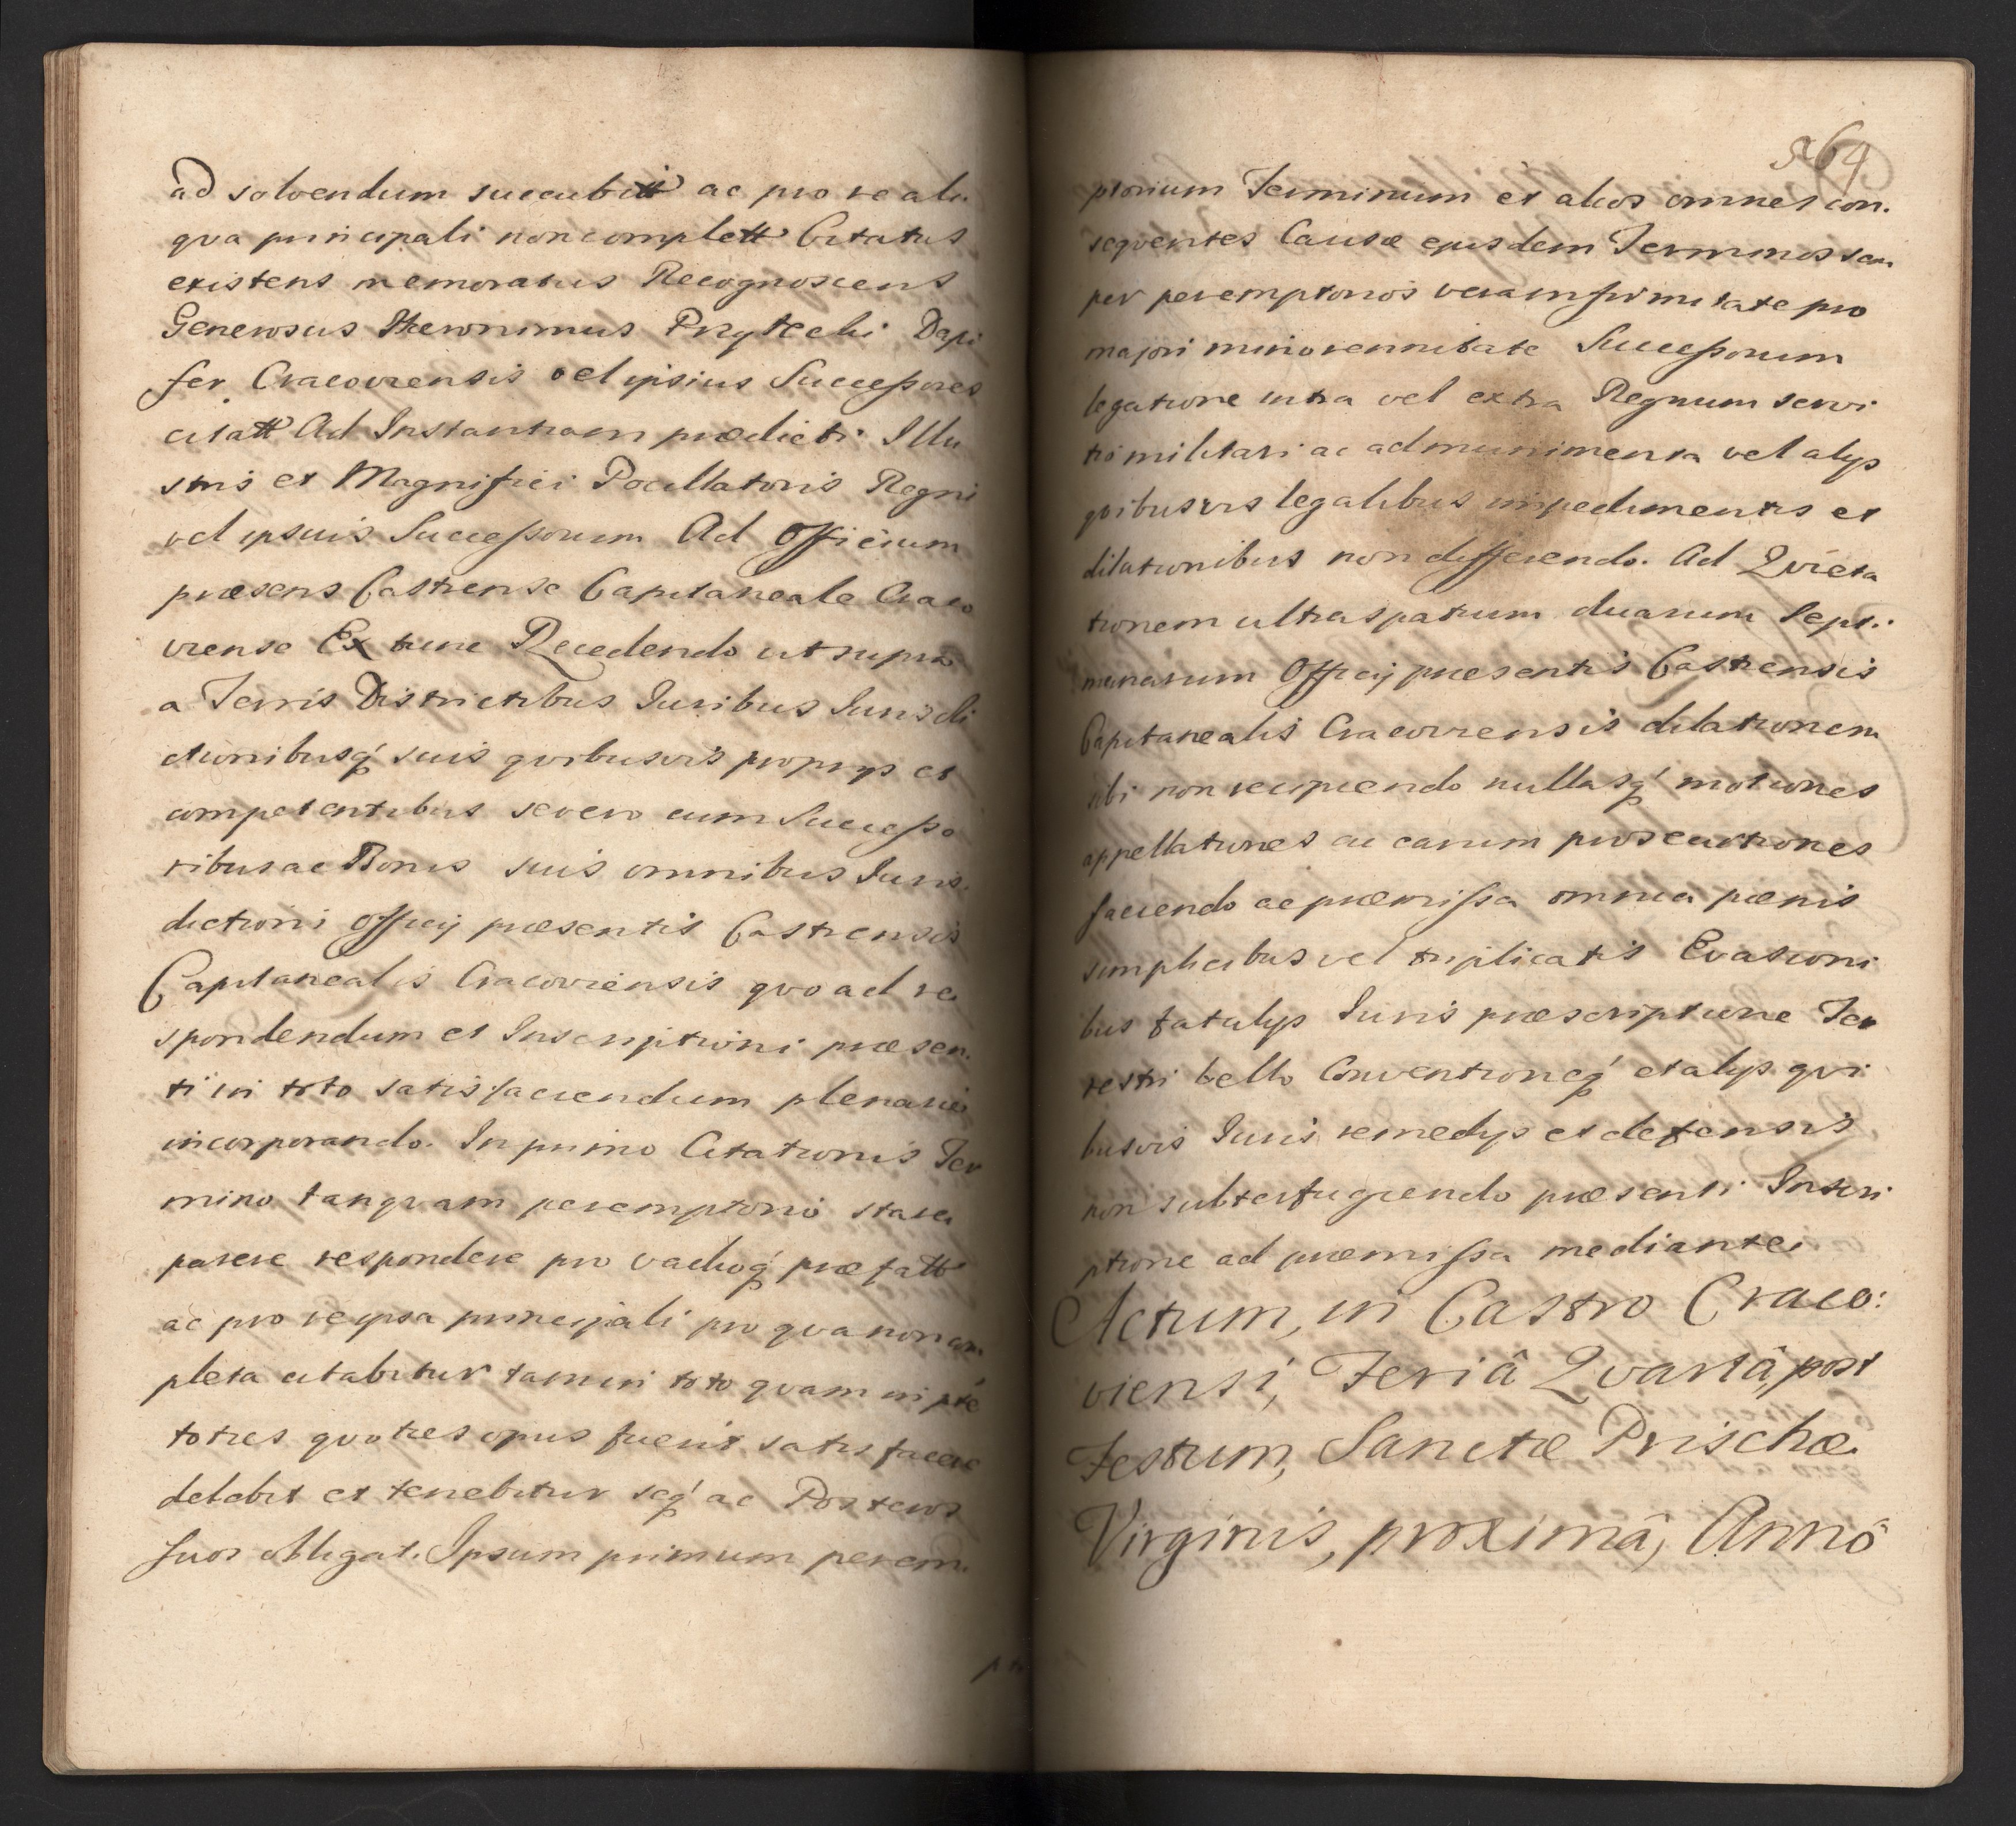 ad solvendum succubitt ac pro re ali
qva principali non complett Citatus
existens memoratus Recognoscens
Generosus Hieronimus Przyłecki Dapi
fer Cracoviensis vel ipsius Successores
citatt Ad Instantiam prædicti Illu
stris et Magnifici Pocillatoris Regni
vel ipsius Successorum Ad Officium
præsens Castrense Capitaneale Craco
viense Ex tunc Recedendo ut supra
a Terris Districtibus Iuribus Iurisdi
ctionibusq́ suis qvibusvis proprys et
competentibus severo cum Successo
ribus ac Bonis suis omnibus Iuris.
dictioni Officij præsentis Castrensis
Capitanealis Cracoviensis qvo ad re
spondendum et Inscriptioni præsen.
ti in toto satisfaciendum plenarie
incorporando. In primo Citationis Ter
mino tanqvam peremptorio stare
parere respondere pro vadioq́ præfatt
ac pro re ipsa principali pro qva non com
pleta citabitur tam in toto qvam in pte
toties qvoties opus fuerit satisfacere
debebit et tenebitur seq́ ac Posteros
suos obligat. Ipsum primum perem.
564
ptorium Terminum et alios omnes con.
seqventes Causæ ejusdem Terminos sem
per peremptorios vera infirmitate pro
majori minorennitate Successorum
legatione intra vel extra Regnum servi
tio militari ac ad munimenta vel alys
qvibusvis legalibus impedimentis et
dilationibus non differendo. Ad Qvieta
tionem ultra spatium duarum Septi.
manarum Officij præsentis Castrensis
Capitanealis Cracoviensis dilationem
sibi non recipiendo nullasq́ motiones
appellationes ac earum prosecutiones
faciendo ac præmissa omnia pænis
simplicibus vel triplicatis Evasioni
bus fatalys Iuris præscriptione Ter
restri bello Conventioneq́ et alys qvi
busvis Iuris remedys et defensis
non subterfugiendo præsenti Inscri
ptione ad præmissa mediante
Actum, in Castro Craco:
viensi, Feriâ Qvartâ, post
Festum, Sanctæ Prischæ
Virginis, proximâ, Annô